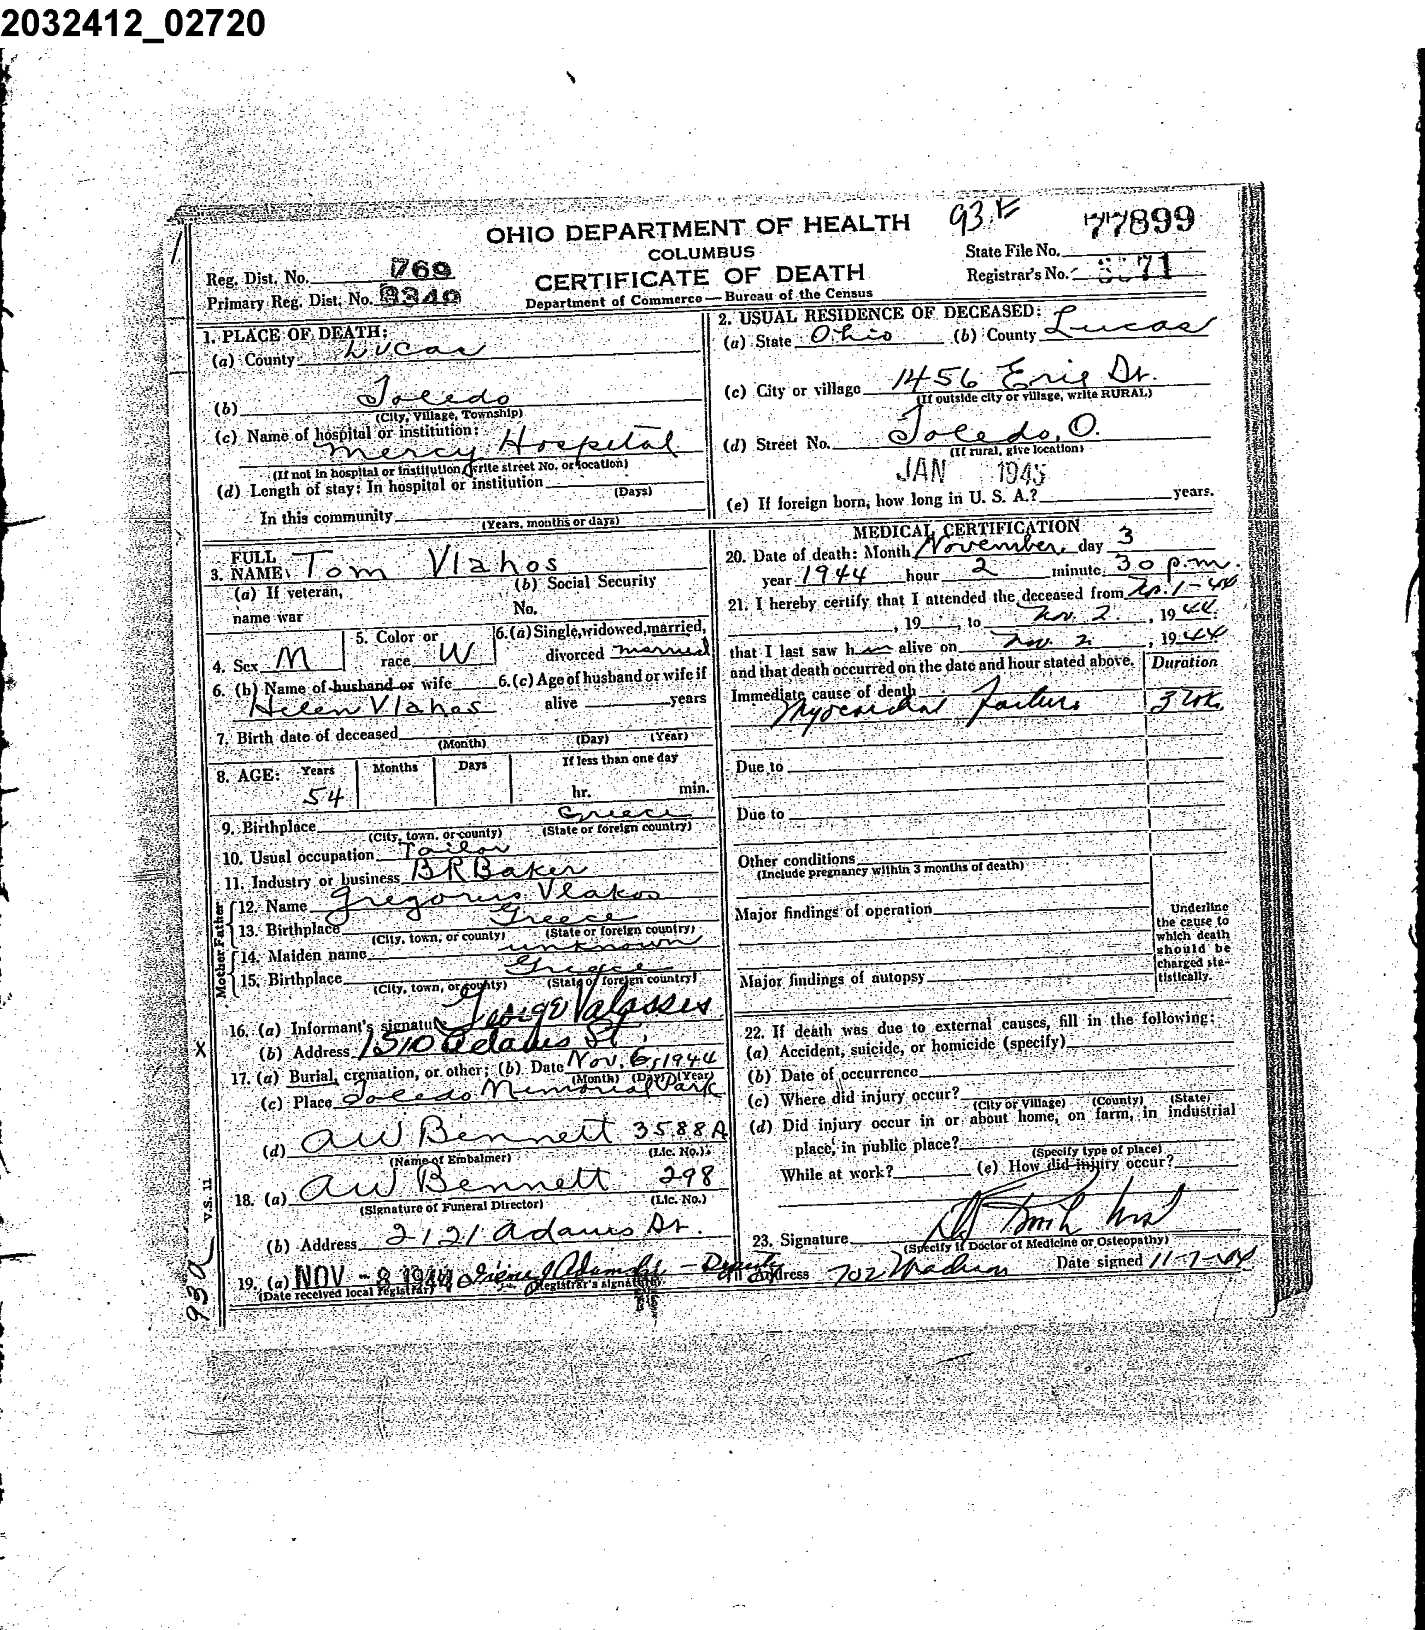 2032412_02720
OHIO DEPARTMENT OF HEALTH 93.E 77899
COLUMBUS State File No.
Reg. Dist. No. 769 CERTIFICATE OF DEATH Registrar's No. 71
Primary Reg. Dist. No. Department of Commerce — Bureau of the Census
1. PLACE OF DEATH:
(a) County Lucas
(b) Toledo
(City, Village, Township)
(c) Name of hospital or institution:
Mercy Hospital
(If not in hospital or institution, write street No. or location)
(d) Length of stay: In hospital or institution
(Days)
In this community
(Years, months or days)
2. USUAL RESIDENCE OF DECEASED:
(a) State Ohio (b) County Lucas
(c) City or village 1456 Erie St.
(If outside city or village, write RURAL)
(d) Street No. Toledo, O.
(If rural, give location)
JAN 1945
(e) If foreign born, how long in U. S. A.? years.
3. FULL NAME Tom Vlahos
(a) If veteran, name war
(b) Social Security No.
4. Sex M
5. Color or race W
6. (a) Single, widowed, married, divorced married
6. (b) Name of husband or wife
Helen Vlahos
6. (c) Age of husband or wife if alive years
7. Birth date of deceased
(Month) (Day) (Year)
8. AGE: Years Months Days If less than one day
54 hr. min.
9. Birthplace Greece
(City, town, or county) (State or foreign country)
10. Usual occupation Tailor
11. Industry or business B R Baker
Father
12. Name Gregorus Vlakos
13. Birthplace Greece
(City, town, or county) (State or foreign country)
Mother
14. Maiden name unknown
15. Birthplace Greece
(City, town, or county) (State or foreign country)
16. (a) Informant's signature George Valasses
(b) Address 1510 Adams St.
X
17. (a) Burial, cremation, or other; (b) Date Nov. 6, 1944
(Month) (Day) (Year)
(c) Place Toledo Memorial Park
(d) AW Bennett 3588A
(Name of Embalmer) (Lic. No.)
18. (a) AW Bennett 298
(Signature of Funeral Director) (Lic. No.)
(b) Address 2121 Adams St.
19. (a) NOV - 8 1944 Deputy
(Date received local registrar) (Registrar's signature)
V.S. 11
93a
MEDICAL CERTIFICATION
20. Date of death: Month November, day 3
year 1944 hour 2 minute 30 p.m.
21. I hereby certify that I attended the deceased from 1-44
, 19 , to Nov. 2 , 1944
that I last saw him alive on Nov. 2 , 1944
and that death occurred on the date and hour stated above. Duration
Immediate cause of death
Myocardial Failure 3 wk.
Due to
Due to
Other conditions
(Include pregnancy within 3 months of death)
Major findings of operation
Major findings of autopsy
Underline the cause to which death should be charged statistically.
22. If death was due to external causes, fill in the following:
(a) Accident, suicide, or homicide (specify)
(b) Date of occurrence
(c) Where did injury occur?
(City or Village) (County) (State)
(d) Did injury occur in or about home, on farm, in industrial
place, in public place?
(Specify type of place)
While at work? (e) How did injury occur?
23. Signature Smith
(Specify if Doctor of Medicine or Osteopathy)
Address 702 Madison Date signed 11-7-44